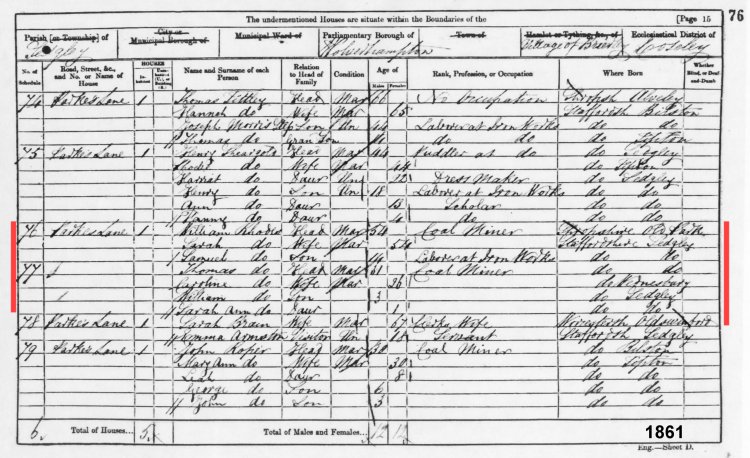 The undermentioned Houses are situate within the Boundaries of the
[Page 15
76
Parish [or Township] of
City or Municipal Borough of
Municipal Ward of
Parliamentary Borough of
Town of
Hamlet or Tything, &c., of
Ecclesiastical District of
Sedgley
Wolverhampton
Village of
Coseley
No. of Schedule
Road, Street, &c., and No. or Name of House
HOUSES
Inhabited
Uninhabited (U.), or Building (B.)
Name and Surname of each Person
Relation to Head of Family
Condition
Age of
Males
Females
Rank, Profession, or Occupation
Where Born
Whether Blind, or Deaf-and-Dumb
74 Parkes Lane 1 Thomas Head Mar 66 No Occupation
Hannah do Wife Mar 65 Staffordsh Bilston
Joseph Morris Son Un 44 Laborer at Iron Works do do
Thomas do Gran Son do do do
75 Parkes Lane 1 Henry Head Mar 44 Puddler at do do Sedgley
do Wife Mar 44 do
Harriet do Daur Un Dress Maker do Sedgley
Henry do Son Un 18 Laborer at Iron Works do do
Ann do Daur 13 Scholar do do
Fanny do Daur 4 do do do
76 Parkes Lane 1 William Rhodes Head Mar 54 Coal Miner Shropshire Old Park
Sarah do Wife Mar 54 Staffordshire Sedgley
Samuel do Son 14 Laborer at Iron Works do do
77 Thomas do Head Mar 31 Coal Miner do do
Caroline do Wife Mar 26 do Wednesbury
William do Son 3 do Sedgley
Sarah Ann do Daur 1 do do
78 Parkes Lane 1 Sarah Brain Wife Mar 67 Wife
Emma Visitor Un 18 Servant Staffordsh Sedgley
79 Parkes Lane 1 John Roper Head Mar 30 Coal Miner do Bilston
Mary Ann do Wife Mar 30 do Tipton
Leah do Daur 8 do do
George do Son 6 do do
John do Son 3 do do
6 Total of Houses... 5 Total of Males and Females... 12 12
1861
Eng.—Sheet D.